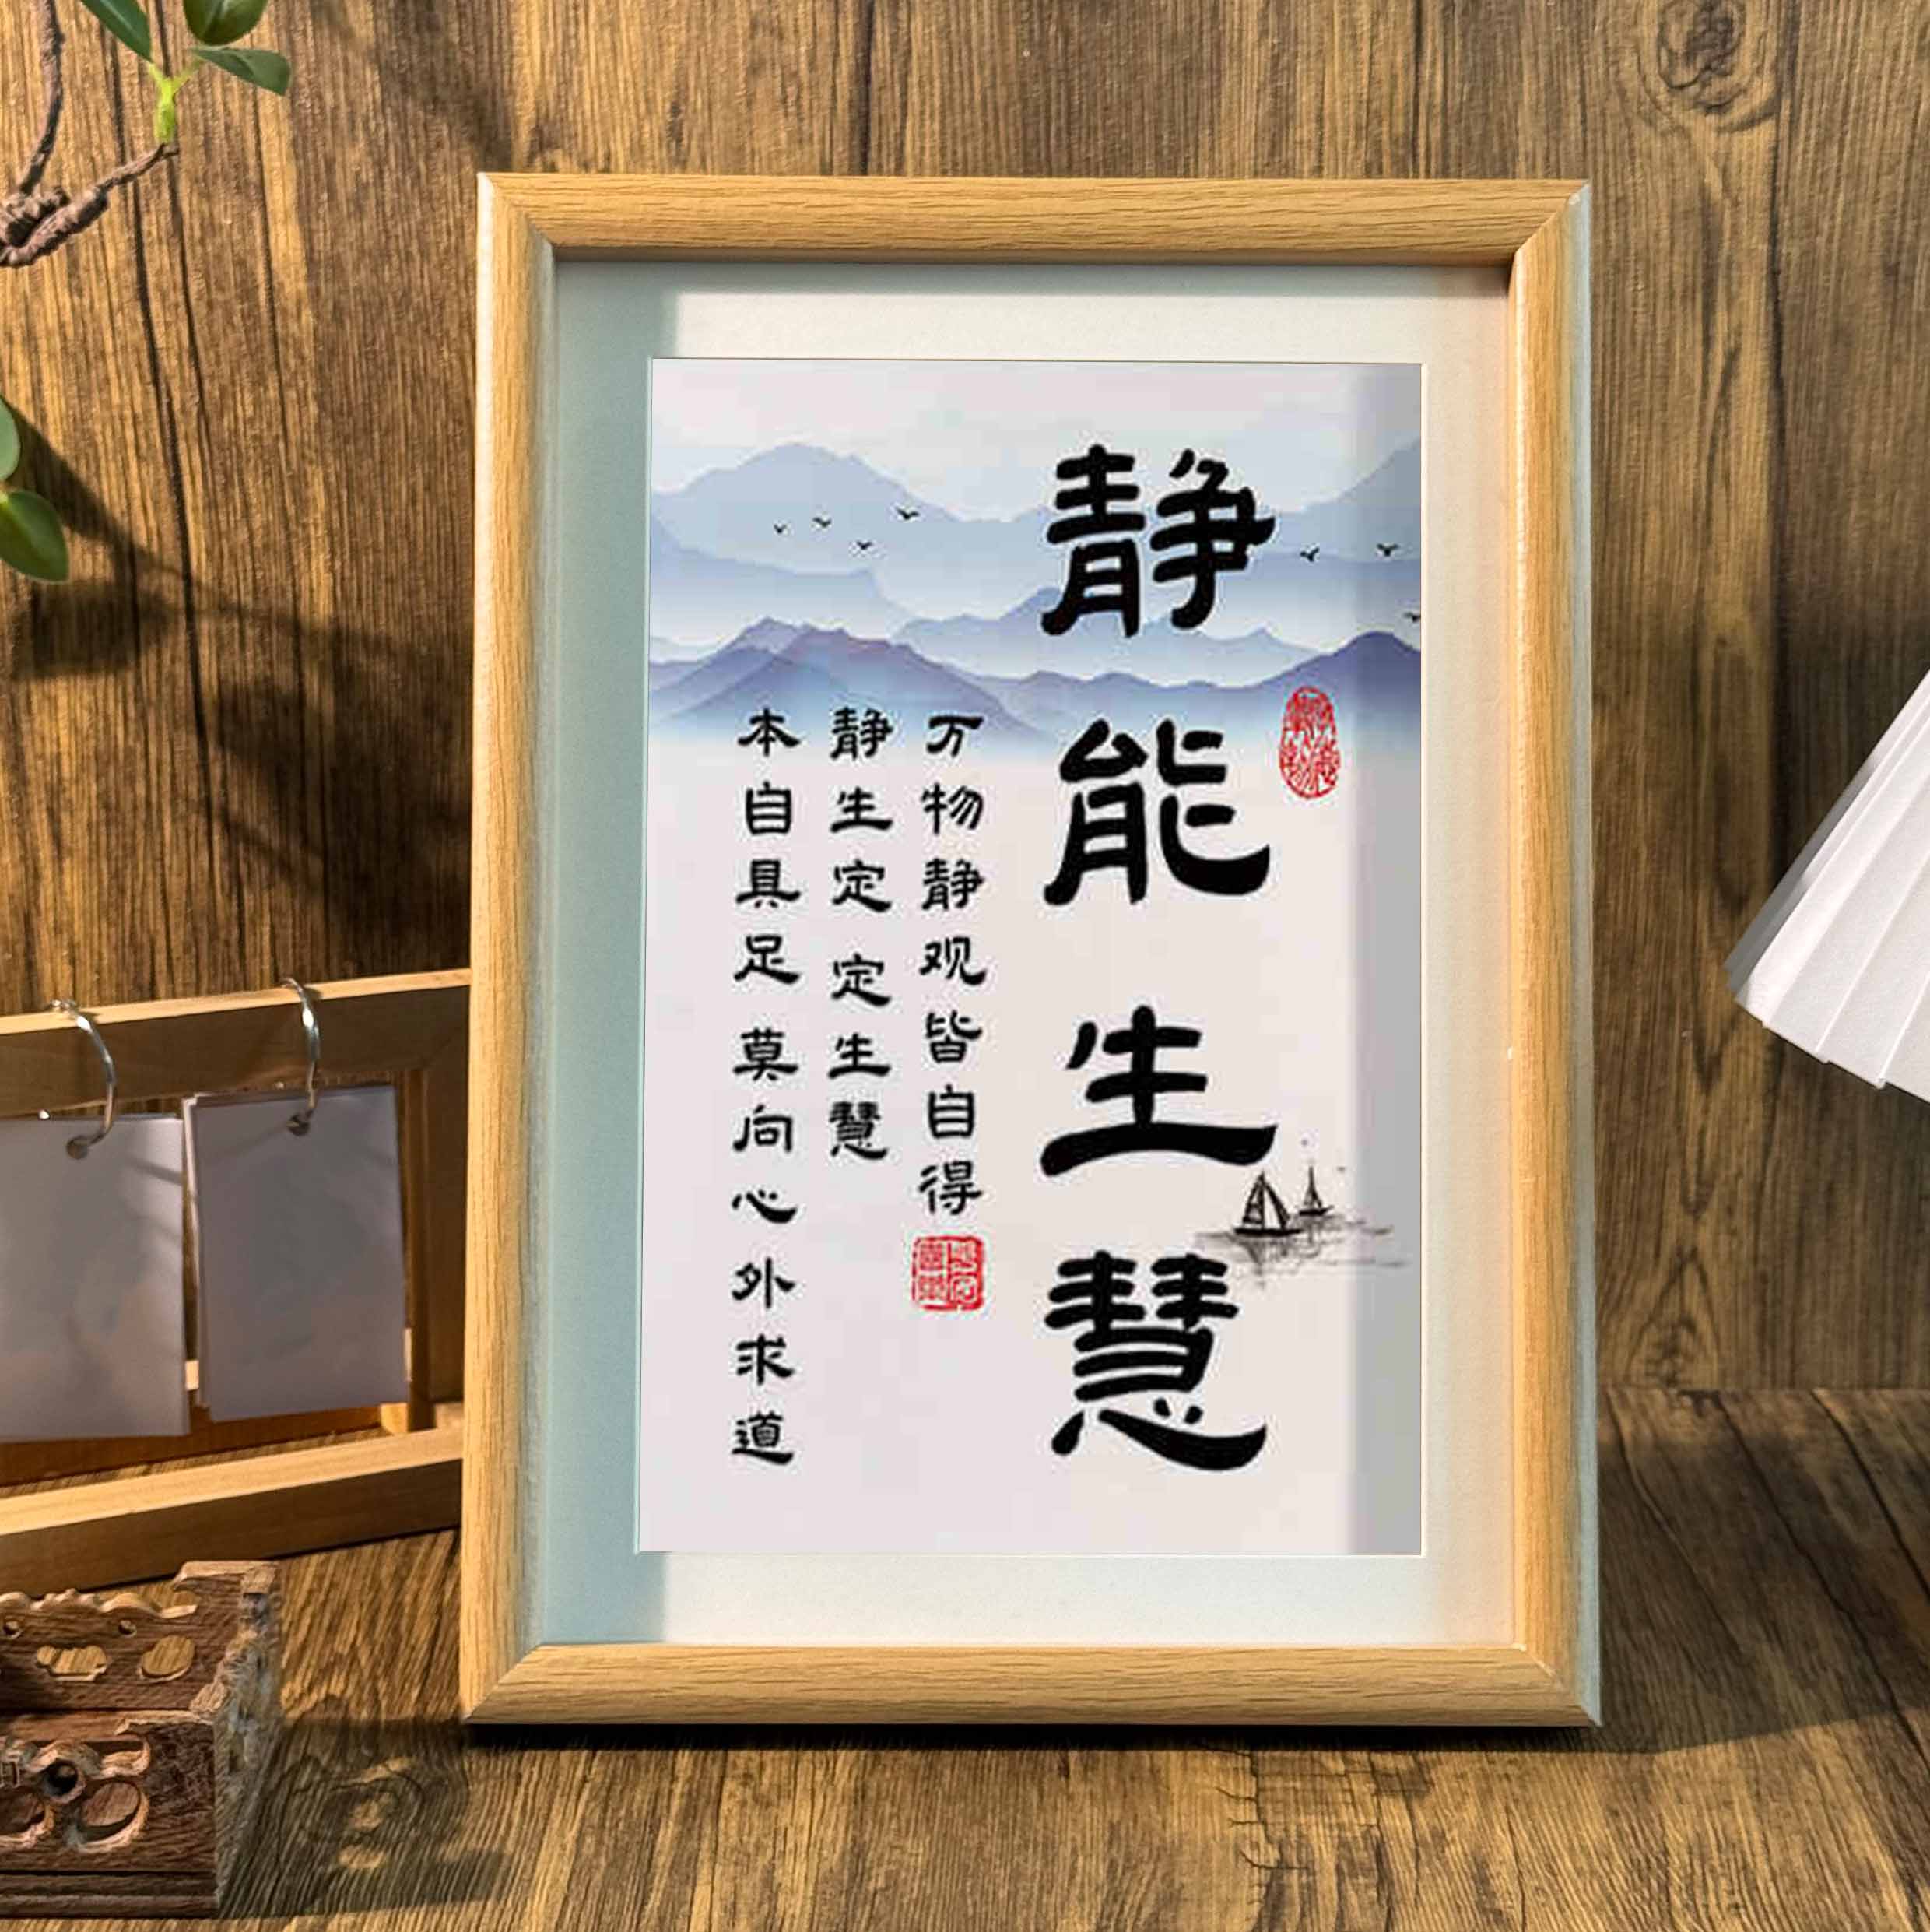 静能生慧
万物静观皆自得
静生定 定生慧
本自具足 莫向心外求道